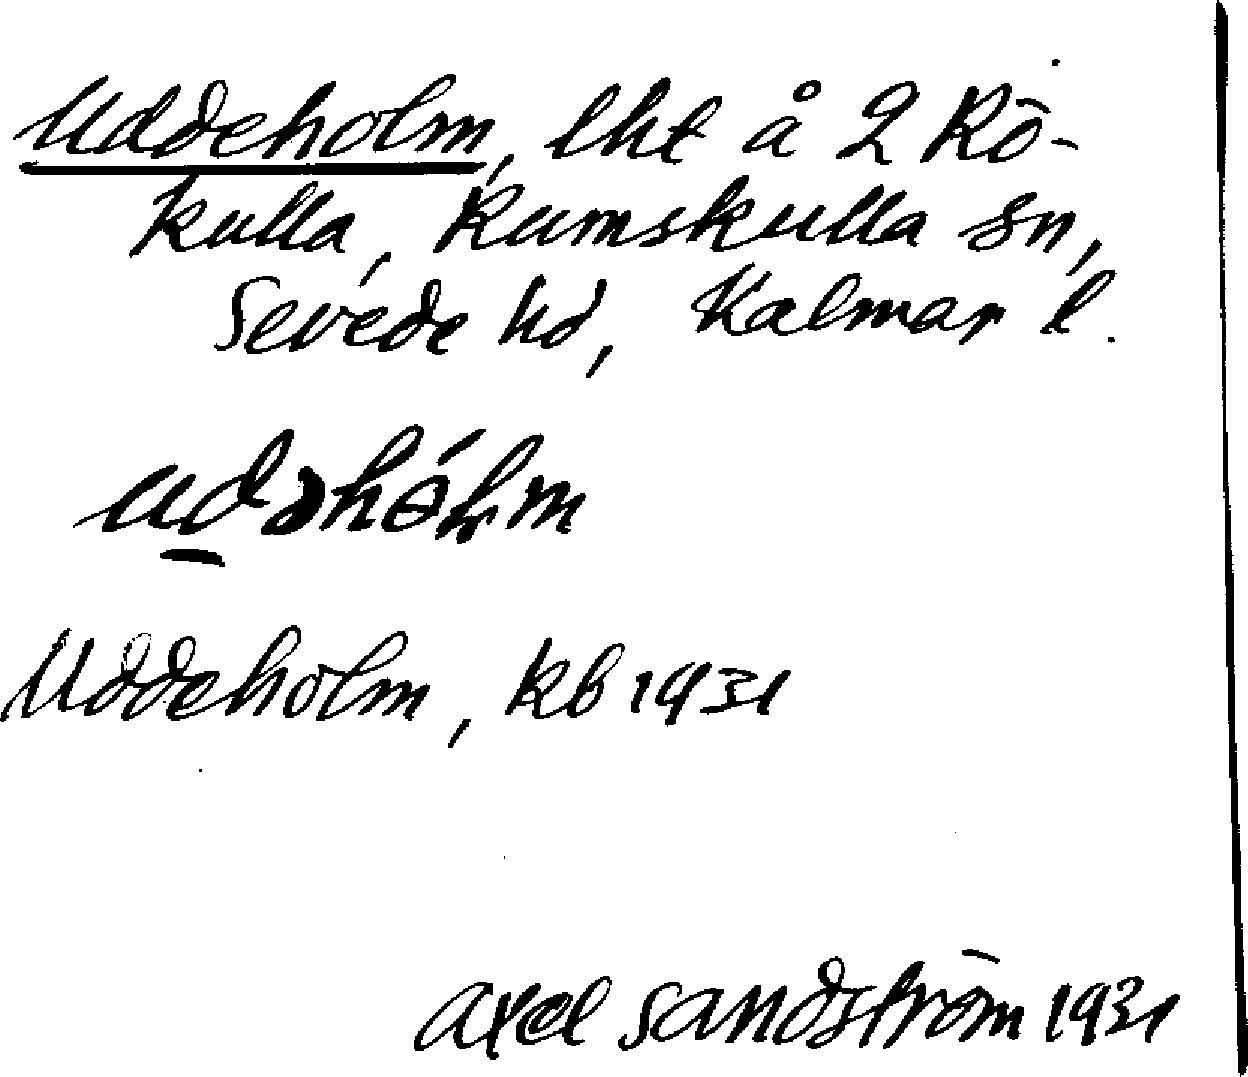 Uddeholm, lht å 2 Rö-
kulla, Rumskulla sn,
Sevede hd, Kalmar l.
Uddeholm, kb 1931
Axel Sandström 1931